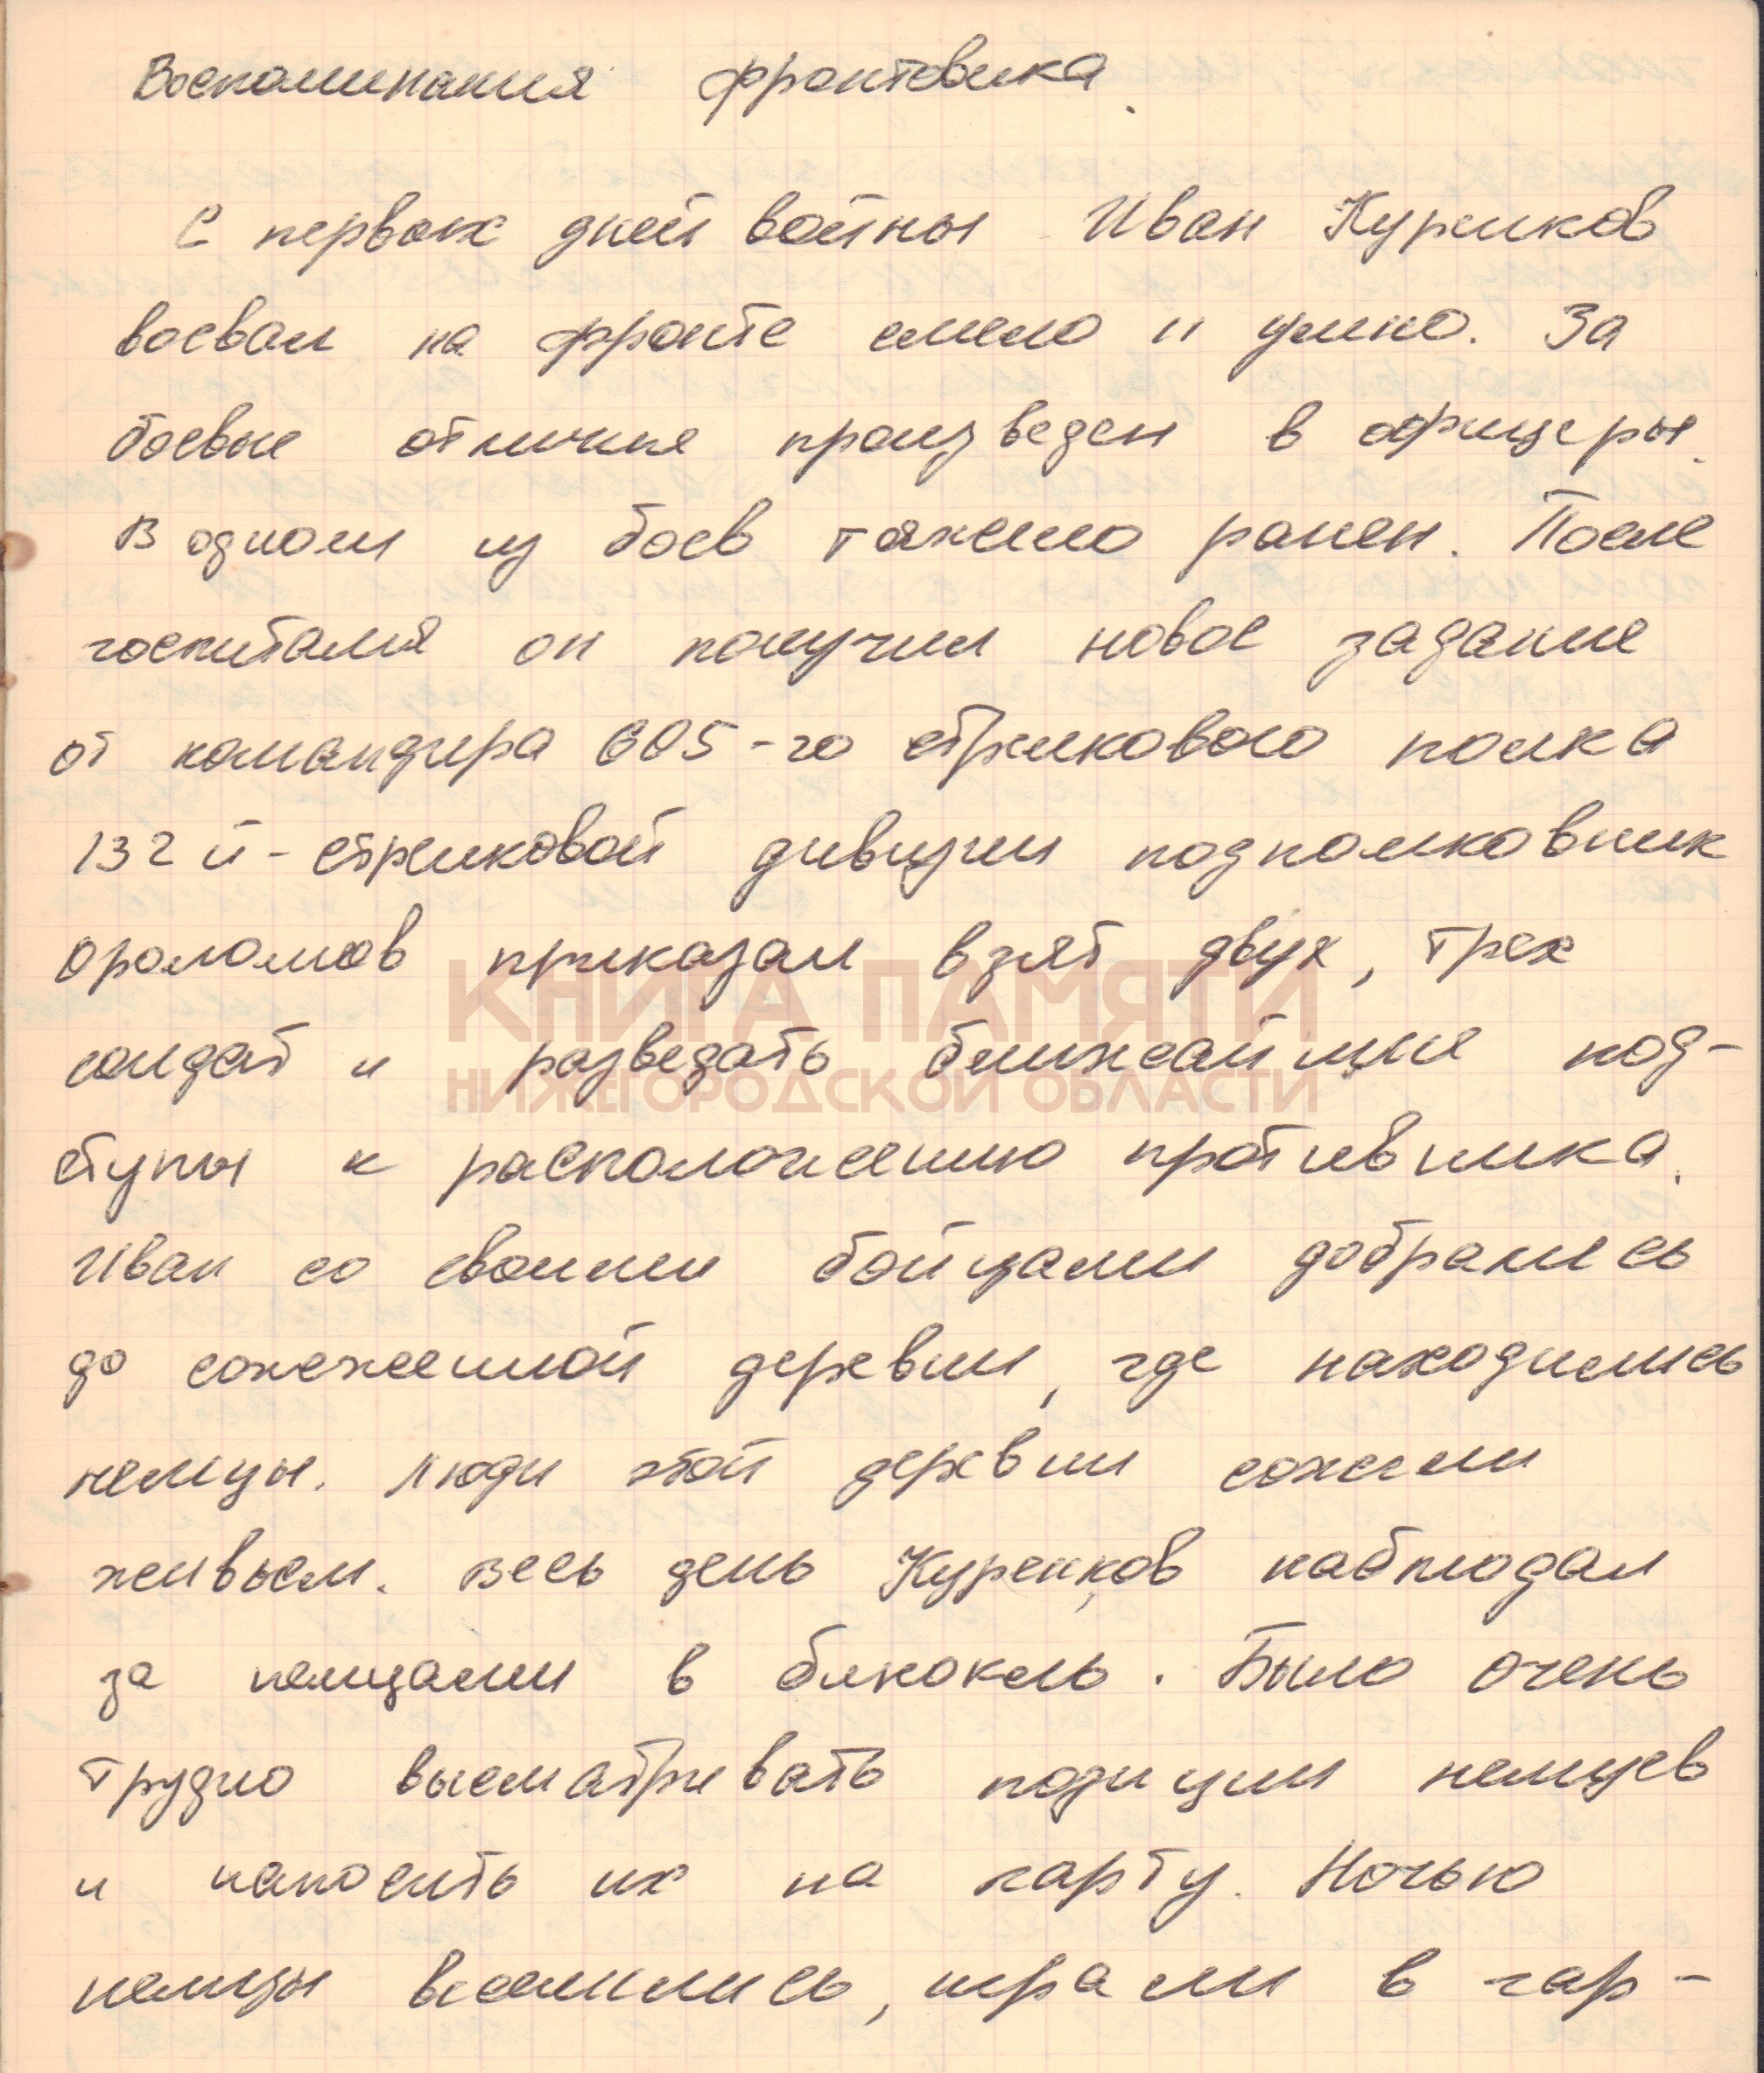 Воспоминания фронтовика.
С первых дней войны Иван Куренков
воевал на фронте смело и умно. За
боевые отличия произведен в офицеры.
В одном из боев тяжело ранен. После
госпиталя он получил новое задание
от командира 605-го стрелкового полка
132 й-стрелковой дивизии подполковник
приказал взят двух, трех
солдат и разведать ближайшие под-
ступы к расположению противника.
Иван со своими бойцами добрались
до сожженной деревни, где находились
немцы. Люди этой деревни сожгли
живьем. Весь день Куренков наблюдал
за немцами в бинокль. Было очень
трудно высматривать позиции немцев
и наносить их на карту. Ночью
немцы веселились, играли в гар-
КНИГА ПАМЯТИ
НИЖЕГОРОДСКОЙ ОБЛАСТИ